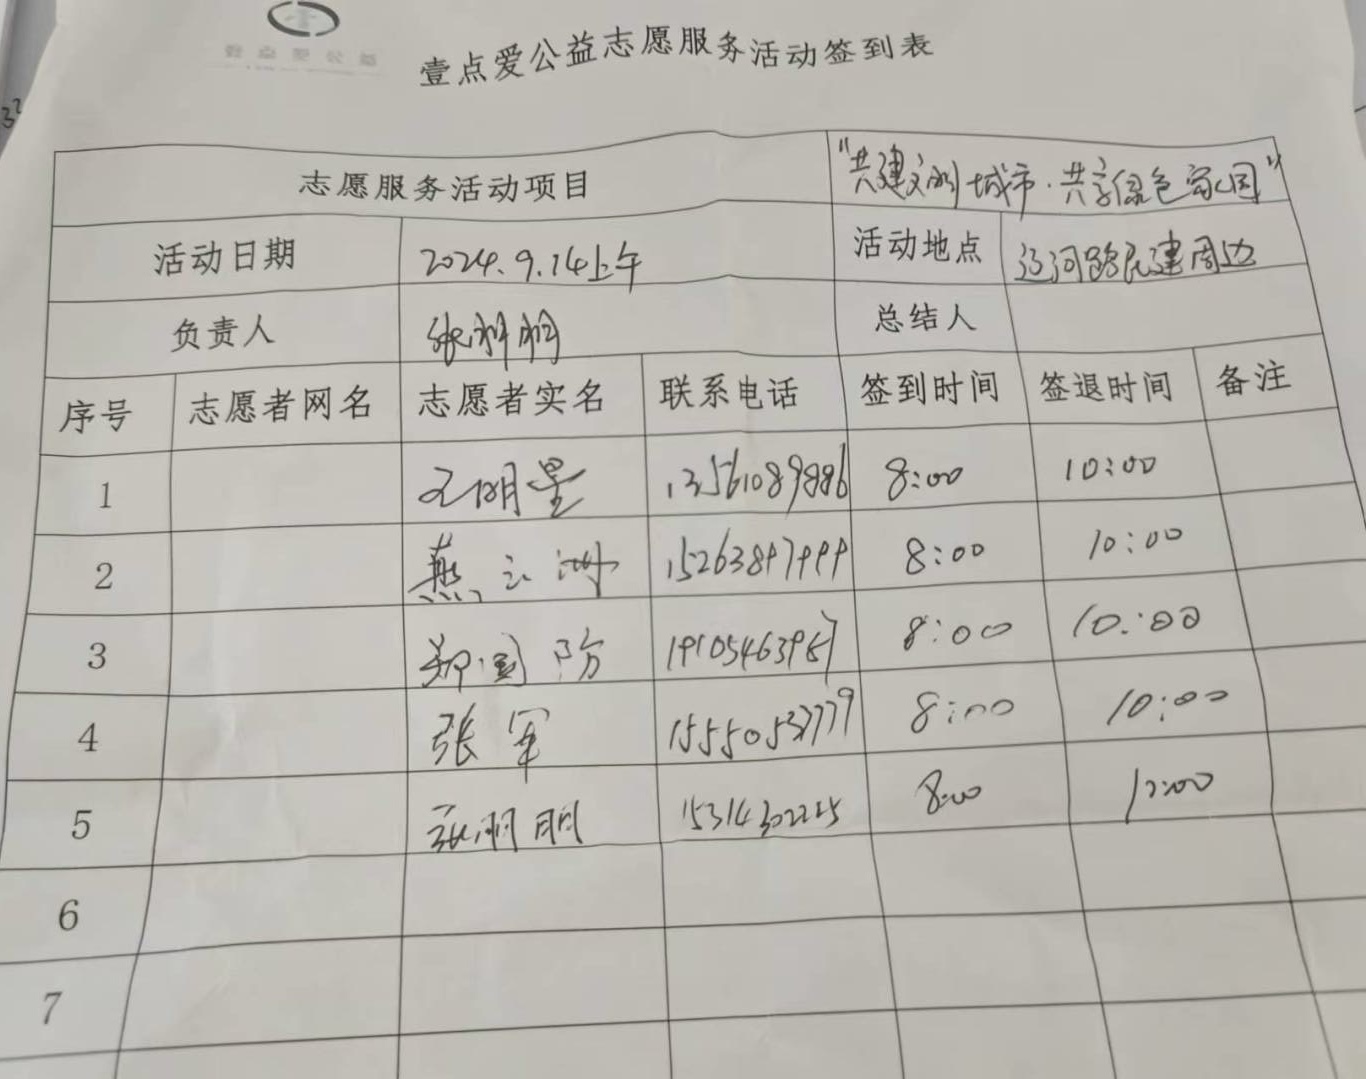 壹点爱公益
壹点爱公益志愿服务活动签到表
志愿服务活动项目 "共建文明城市·共享绿色家园"
活动日期 2024.9.14上午 活动地点 辽河路民建周边
负责人 张朋朋 总结人
序号 志愿者网名 志愿者实名 联系电话 签到时间 签退时间 备注
1 王明星 13561089886 8:00 10:00
2 燕 8:00 10:00
3 郑国防 8:00 10:00
4 张军 8:00 10:00
5 张朋朋 8:00
6
7